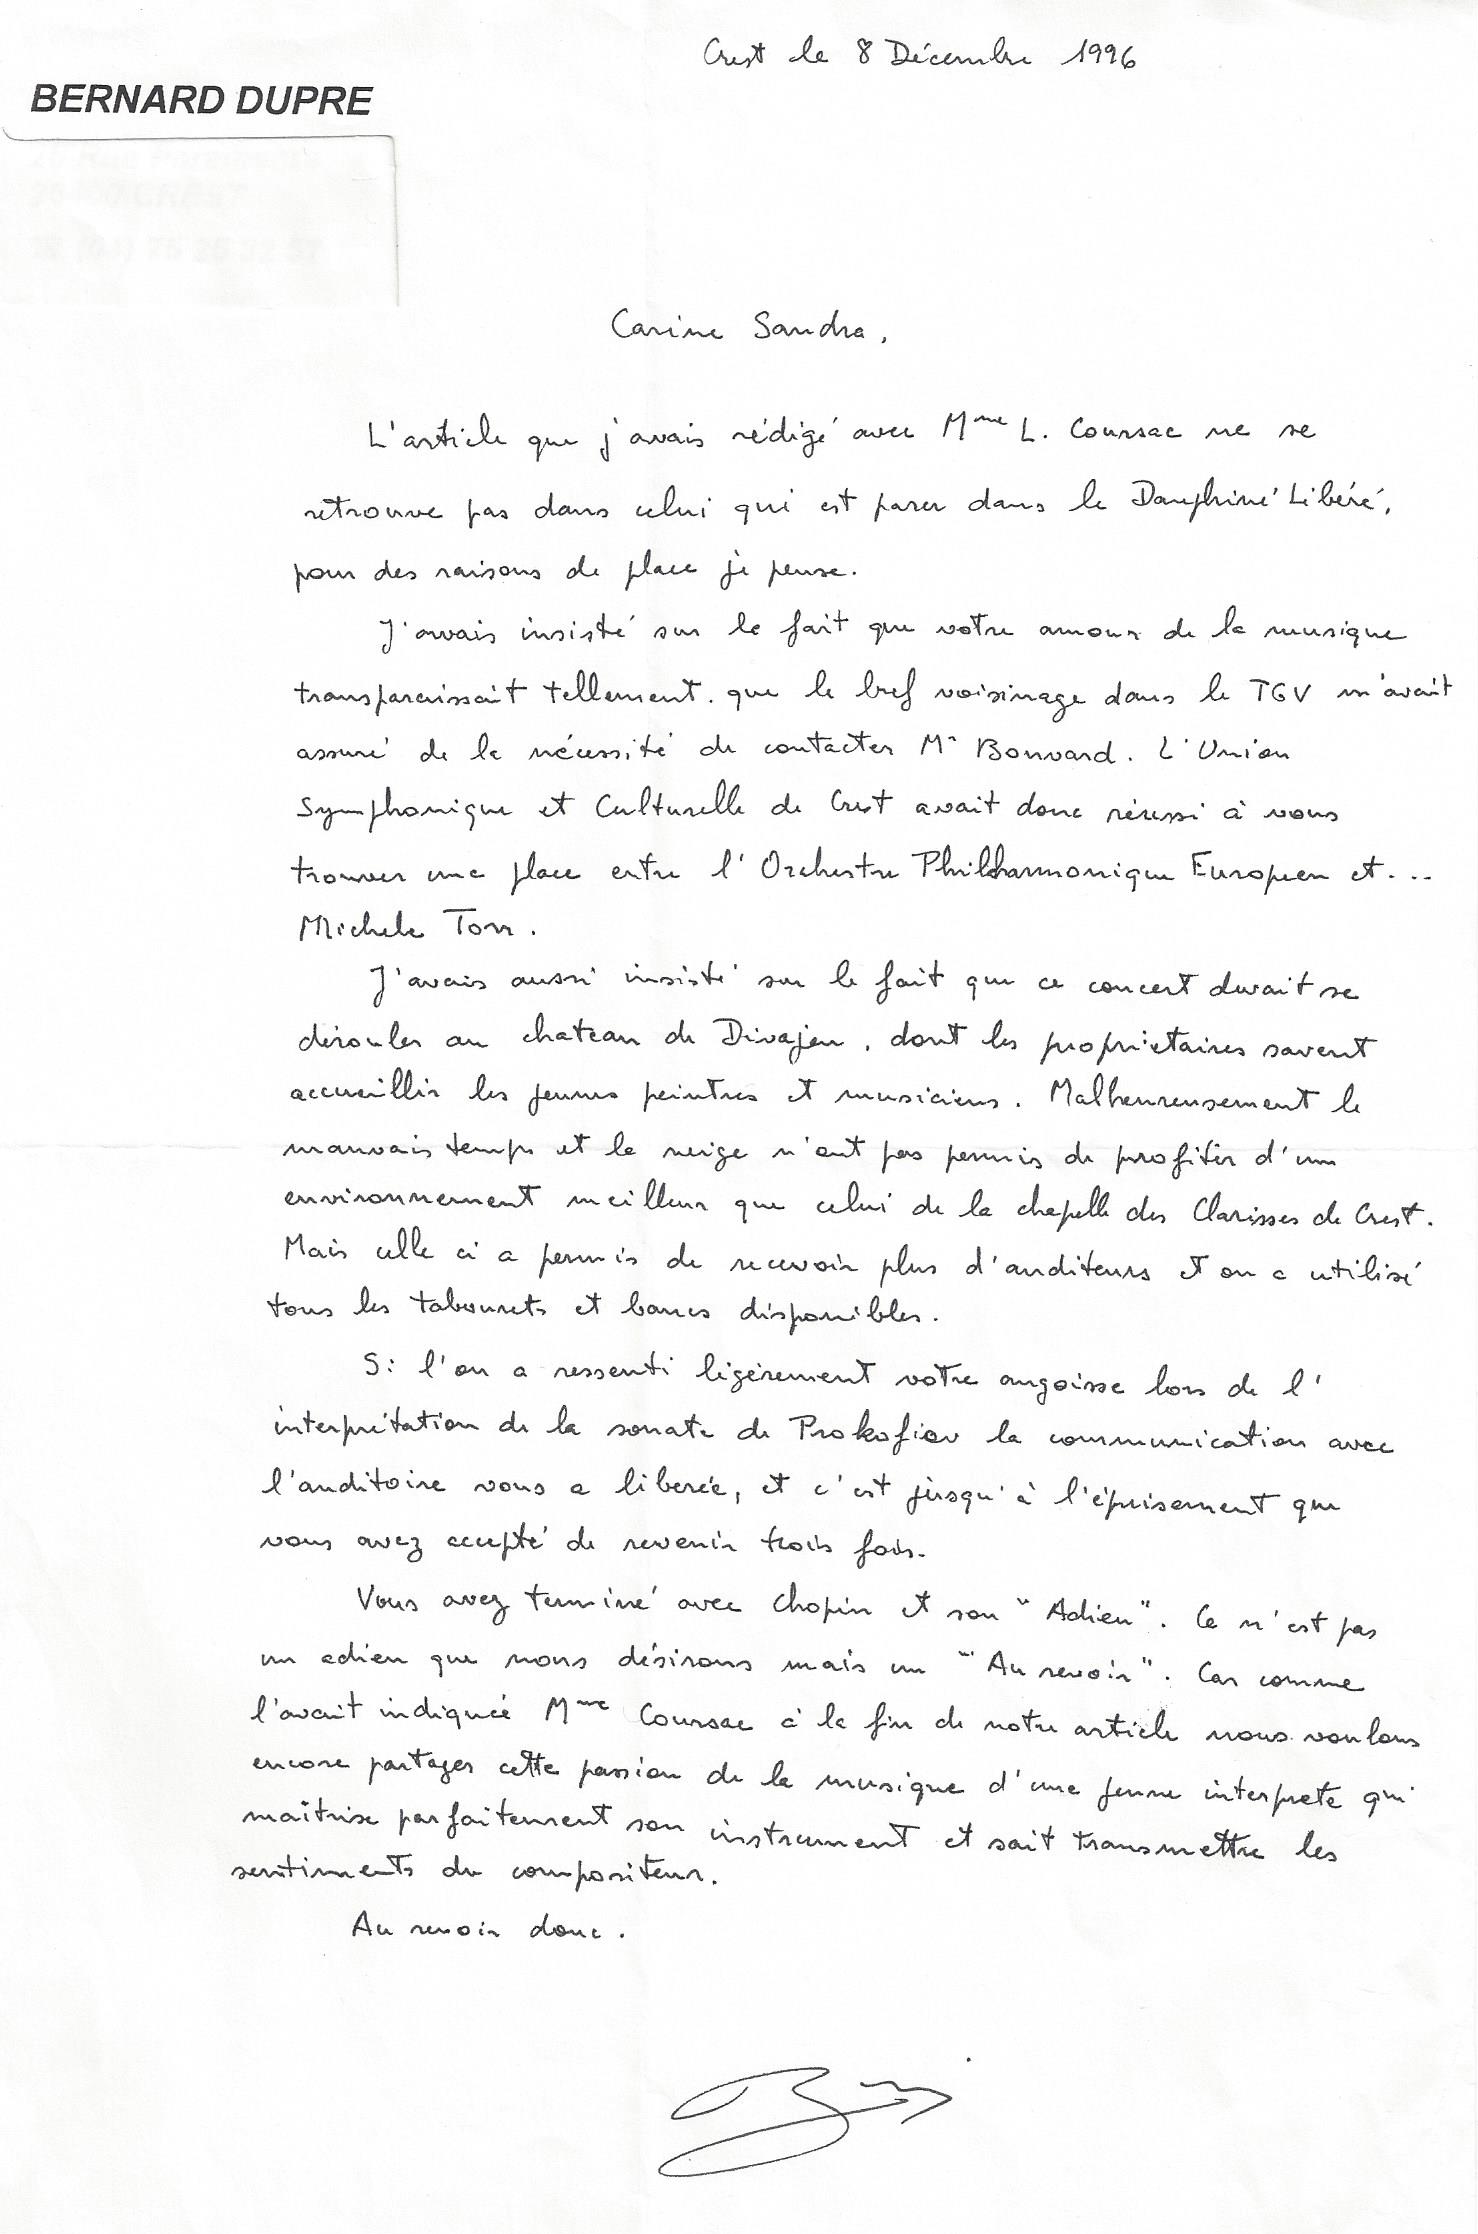 Crest le 8 Décembre 1996
BERNARD DUPRE
Carine Sandra,
L'article que j'avais rédigé avec Mme L. Coursac ne se
retrouve pas dans celui qui est parer dans le Dauphiné Libéré,
pour des raisons de place je pense.
J'avais insisté sur le fait que votre amour de la musique
transparaissait tellement. que le bref voisinage dans le TGV m'avait
assuré de la nécessité de contacter Mr Bonvard. L'Union
Symphonique et Culturelle de Crest avait donc réussi à vous
trouver une place entre l'Orchestre Philharmonique Européen et...
Michele Torr.
J'avais aussi insisté sur le fait que ce concert devait se
dérouler au chateau de Divajeu, dont les propriétaires savent
accueillir les jeunes peintres et musiciens. Malheureusement le
mauvais temps et la neige n'ont pas permis de profiter d'un
environnement meilleur que celui de la chapelle des Clarisses de Crest.
Mais celle ci a permis de recevoir plus d'auditeurs et on a utilisé
tous les tabourets et bancs disponibles.
Si l'on a ressenti légèrement votre angoisse lors de l'
interprétation de la sonate de Prokofiev la communication avec
l'auditoire vous a liberée, et c'est jusqu'à l'épuisement que
vous avez accepté de revenir trois fois.
Vous avez terminé avec Chopin et son "Adieu". Ce n'est pas
un adieu que nous désirons mais un "Au revoir". Car comme
l'avait indiquée Mme Coursac à la fin de notre article nous voulons
encore partager cette passion de la musique d'une jeune interprete qui
maîtrise parfaitement son instrument et sait transmettre les
sentiments du compositeur.
Au revoir donc.